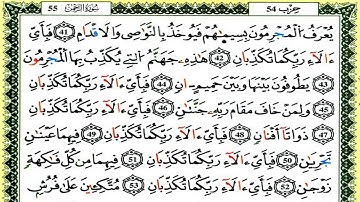 55 سُورَةُ الرَّحْمَٰن حِزْب 54
يُعْرَفُ الْمُجْرِمُونَ بِسِيمَاهُمْ فَيُوخَذُ بِالنَّوَاصِي وَالَاقْدَامِ (41) فَبِأَيِّ
ءَالَآءِ رَبِّكُمَا تُكَذِّبَانِ (42) هَٰذِهِ جَهَنَّمُ التِي يُكَذِّبُ بِهَا الْمُجْرِمُونَ
(43) يَطُوفُونَ بَيْنَهَا وَبَيْنَ حَمِيمٍ ءَانٍ (44) فَبِأَيِّ ءَالَآءِ رَبِّكُمَا تُكَذِّبَانِ
(45) وَلِمَنْ خَافَ مَقَامَ رَبِّهِ جَنَّتَانِ (46) فَبِأَيِّ ءَالَآءِ رَبِّكُمَا تُكَذِّبَانِ
(47) ذَوَاتَا أَفْنَانٍ (48) فَبِأَيِّ ءَالَآءِ رَبِّكُمَا تُكَذِّبَانِ (49) فِيهِمَا عَيْنَانِ
تَجْرِيَانِ (50) فَبِأَيِّ ءَالَآءِ رَبِّكُمَا تُكَذِّبَانِ (51) فِيهِمَا مِن كُلِّ فَاكِهَةٍ
زَوْجَانِ (52) فَبِأَيِّ ءَالَآءِ رَبِّكُمَا تُكَذِّبَانِ (53) مُتَّكِـِٕينَ عَلَىٰ فُرُشٍ